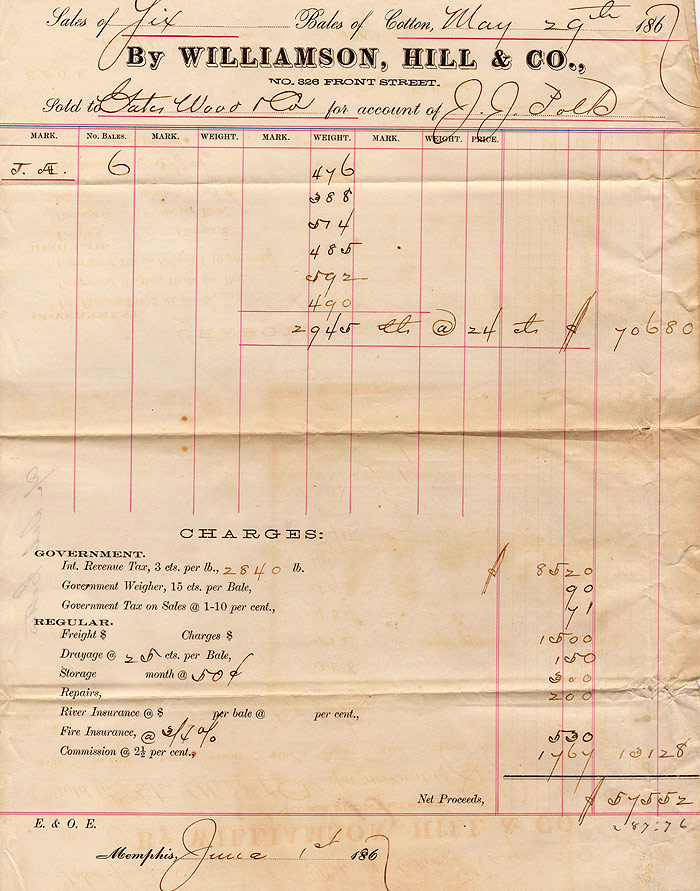 Sales of Six Bales of Cotton, May 29th 1867
By WILLIAMSON, HILL & CO.,
NO. 326 FRONT STREET.
Sold to Gates Wood & Co for account of J. J. Polk
MARK. NO. BALES. MARK. WEIGHT. MARK. WEIGHT. MARK. WEIGHT. PRICE.
6 476
388
574
485
592
490
2945 lbs @ 24 cts $ 70680
CHARGES:
GOVERNMENT.
Int. Revenue Tax, 3 cts. per lb., 2840 lb. $ 8520
Government Weigher, 15 cts. per Bale, 90
Government Tax on Sales @ 1-10 per cent., 71
REGULAR.
Freight $ Charges $ 1500
Drayage @ 25 cts. per Bale, 150
Storage month @ 50¢ 300
Repairs, 200
River Insurance @ $ per bale @ per cent.,
Fire Insurance, @ 3/4 % 530
Commission @ 2½ per cent., 1767 13128
Net Proceeds, $ 57552
287.76
E. & O. E.
Memphis, June 1st 1867